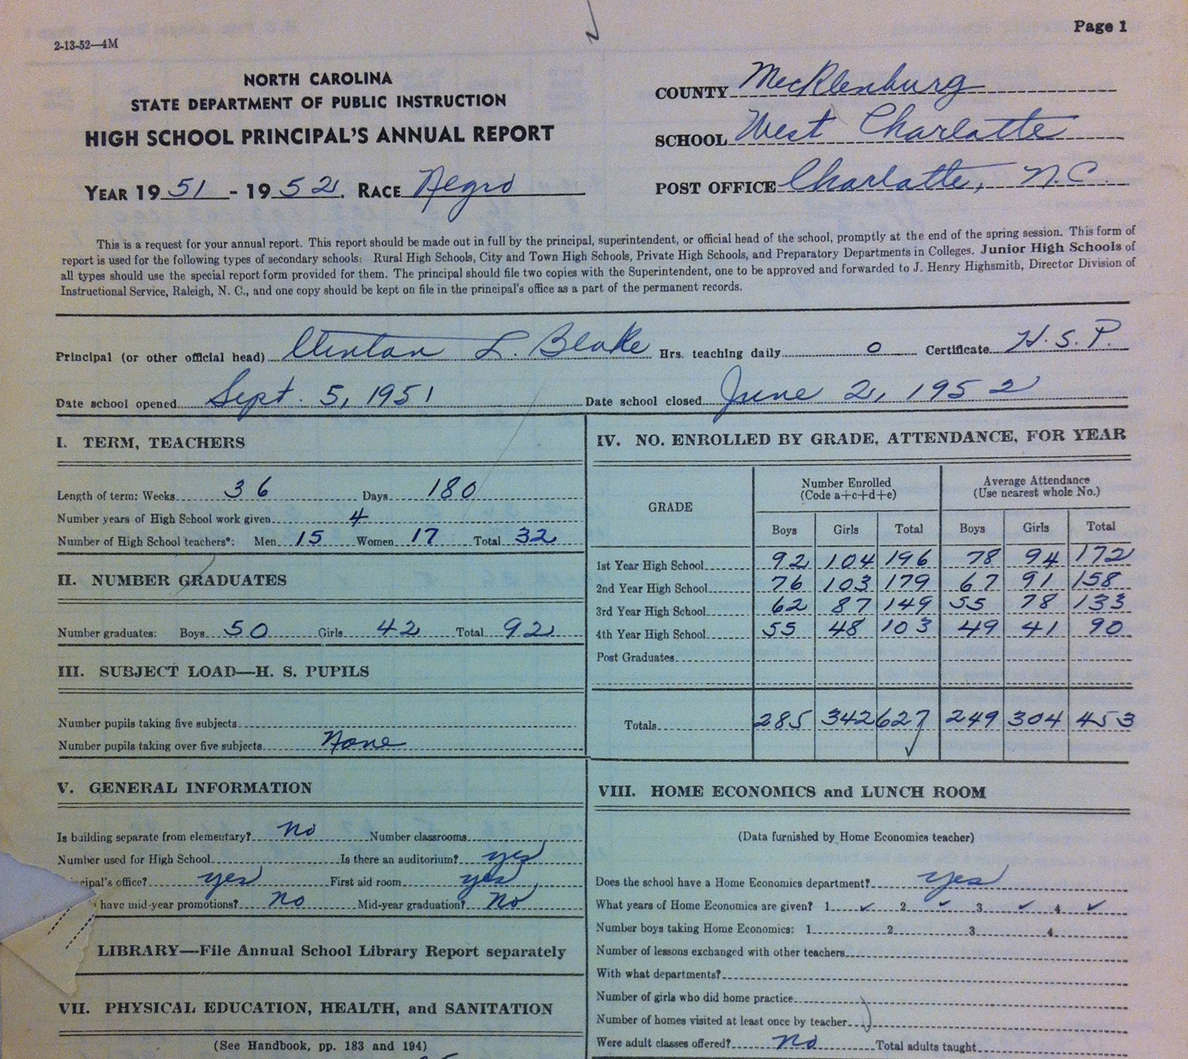 Page 1
2-13-52—4M
NORTH CAROLINA
STATE DEPARTMENT OF PUBLIC INSTRUCTION
HIGH SCHOOL PRINCIPAL'S ANNUAL REPORT
YEAR 1951 - 1952. RACE Negro
COUNTY Mecklenburg
SCHOOL West Charlotte
POST OFFICE Charlotte, N.C.
This is a request for your annual report. This report should be made out in full by the principal, superintendent, or official head of the school, promptly at the end of the spring session. This form of
report is used for the following types of secondary schools: Rural High Schools, City and Town High Schools, Private High Schools, and Preparatory Departments in Colleges. Junior High Schools of
all types should use the special report form provided for them. The principal should file two copies with the Superintendent, one to be approved and forwarded to J. Henry Highsmith, Director Division of
Instructional Service, Raleigh, N. C., and one copy should be kept on file in the principal's office as a part of the permanent records.
Principal (or other official head) Clinton L. Blake Hrs. teaching daily 0 Certificate H.S.P.
Date school opened Sept. 5, 1951 Date school closed June 2, 1952
I. TERM, TEACHERS
Length of term: Weeks 36 Days 180
Number years of High School work given 4
Number of High School teachers*: Men 15 Women 17 Total 32
II. NUMBER GRADUATES
Number graduates: Boys 50 Girls 42 Total 92
III. SUBJECT LOAD—H. S. PUPILS
Number pupils taking five subjects
Number pupils taking over five subjects None
IV. NO. ENROLLED BY GRADE, ATTENDANCE, FOR YEAR
GRADE
Number Enrolled
(Code a+c+d+e)
Average Attendance
(Use nearest whole No.)
Boys Girls Total Boys Girls Total
1st Year High School 92 104 196 78 94 172
2nd Year High School 76 103 179 67 91 158
3rd Year High School 62 87 149 55 78 133
4th Year High School 55 48 103 49 41 90
Post Graduates
Totals 285 342 627 249 304 453
V. GENERAL INFORMATION
Is building separate from elementary? No Number classrooms
Number used for High School Is there an auditorium? yes
cipal's office? yes First aid room yes
have mid-year promotions? No Mid-year graduation? No
LIBRARY—File Annual School Library Report separately
VII. PHYSICAL EDUCATION, HEALTH, and SANITATION
(See Handbook, pp. 183 and 194)
VIII. HOME ECONOMICS and LUNCH ROOM
(Data furnished by Home Economics teacher)
Does the school have a Home Economics department? yes
What years of Home Economics are given? 1 ✓ 2 ✓ 3 ✓ 4 ✓
Number boys taking Home Economics: 1 2 3 4
Number of lessons exchanged with other teachers
With what departments?
Number of girls who did home practice
Number of homes visited at least once by teacher
Were adult classes offered? No Total adults taught